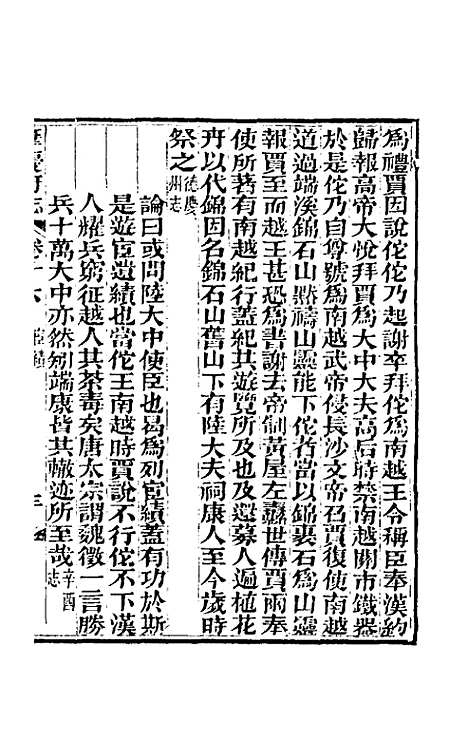 爲禮賈因說佗佗乃起謝卒拜佗爲南越王令稱臣奉漢約
歸報高帝大悅拜賈爲大中大夫高后時禁南越關市鐵器
於是佗乃自尊號爲南越武帝侵長沙文帝召賈復使南越
道過端溪錦石山默禱山靈能下佗者當以錦裹石爲山靈
報賈至而越王甚恐爲書謝去帝制黃屋左纛世傳賈兩奉
使所著有南越紀行蓋紀其遊覽所及也及還募人遍植花
卉以代錦因名錦石山舊山下有陸大夫祠康人至今歲時
祭之德慶州志
論曰或問陸大中使臣也曷爲列宦績蓋有功於斯
是遊宦遺績也當佗王南越時賈說不行佗不下漢
人耀兵窮征越人其荼毒矣唐太宗謂魏徵一言勝
兵十萬大中亦然矧端康皆其轍迹所至哉辛酉志
肇慶府志 卷十六 三